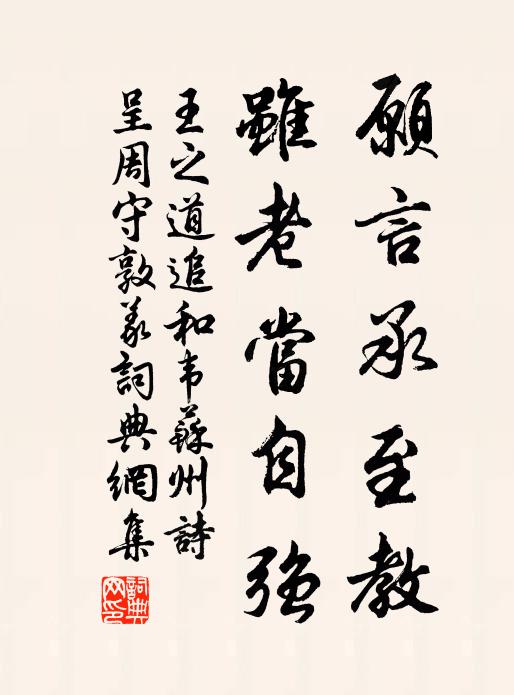 願言承至教
雖老當自強
王之道追和韦蘇州詩
呈周守敦義詞典網集
詞典網印